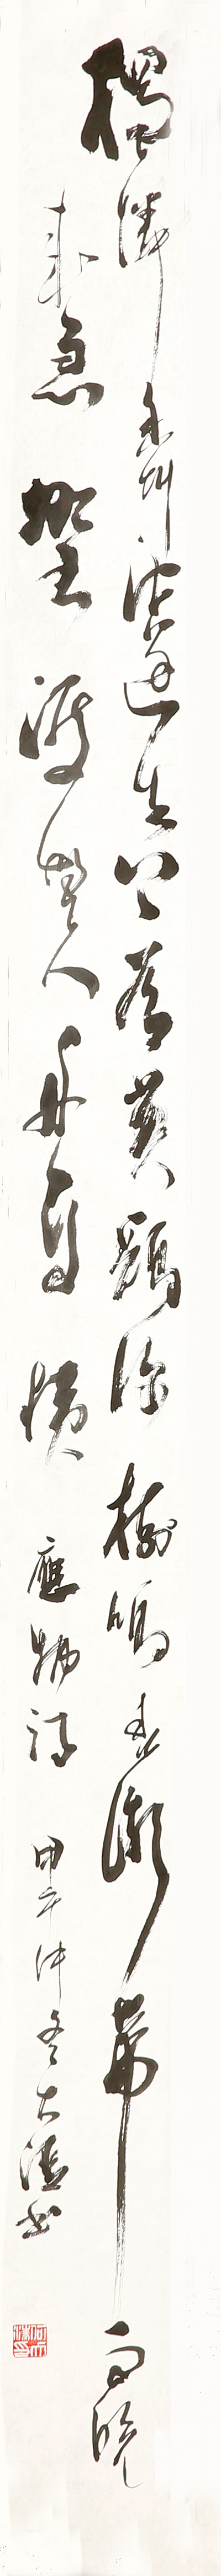 獨憐幽草澗邊生上有黃鸝深樹鳴春潮帶雨晚
來急野渡無人舟自橫 應物詩 甲午仲冬大書